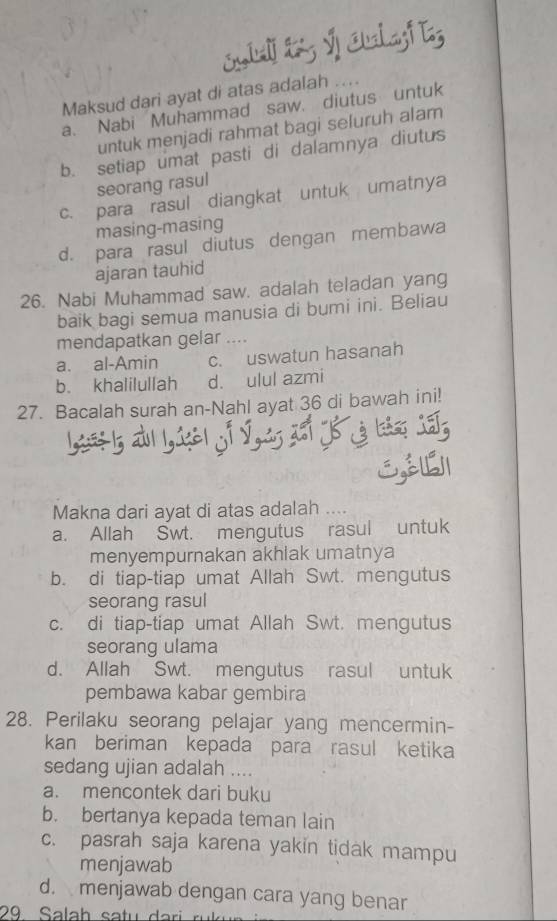 وَمَا أَرْسَلْنَاكَ إِلَّا رَحْمَةً لِلْعَالَمِينَ
Maksud dari ayat di atas adalah ....
a. Nabi Muhammad saw. diutus untuk
untuk menjadi rahmat bagi seluruh alam
b. setiap umat pasti di dalamnya diutus
seorang rasul
c. para rasul diangkat untuk umatnya
masing-masing
d. para rasul diutus dengan membawa
ajaran tauhid
26. Nabi Muhammad saw. adalah teladan yang
baik bagi semua manusia di bumi ini. Beliau
mendapatkan gelar ....
a. al-Amin c. uswatun hasanah
b. khalilullah d. ulul azmi
27. Bacalah surah an-Nahl ayat 36 di bawah ini!
وَلَقَدْ بَعَثْنَا فِي كُلِّ أُمَّةٍ رَسُولًا أَنِ اعْبُدُوا اللَّهَ وَاجْتَنِبُوا
الطَّاغُوتَ
Makna dari ayat di atas adalah ....
a. Allah Swt. mengutus rasul untuk
menyempurnakan akhlak umatnya
b. di tiap-tiap umat Allah Swt. mengutus
seorang rasul
c. di tiap-tiap umat Allah Swt. mengutus
seorang ulama
d. Allah Swt. mengutus rasul untuk
pembawa kabar gembira
28. Perilaku seorang pelajar yang mencermin-
kan beriman kepada para rasul ketika
sedang ujian adalah ....
a. mencontek dari buku
b. bertanya kepada teman lain
c. pasrah saja karena yakin tidak mampu
menjawab
d. menjawab dengan cara yang benar
29. Salah satu dari